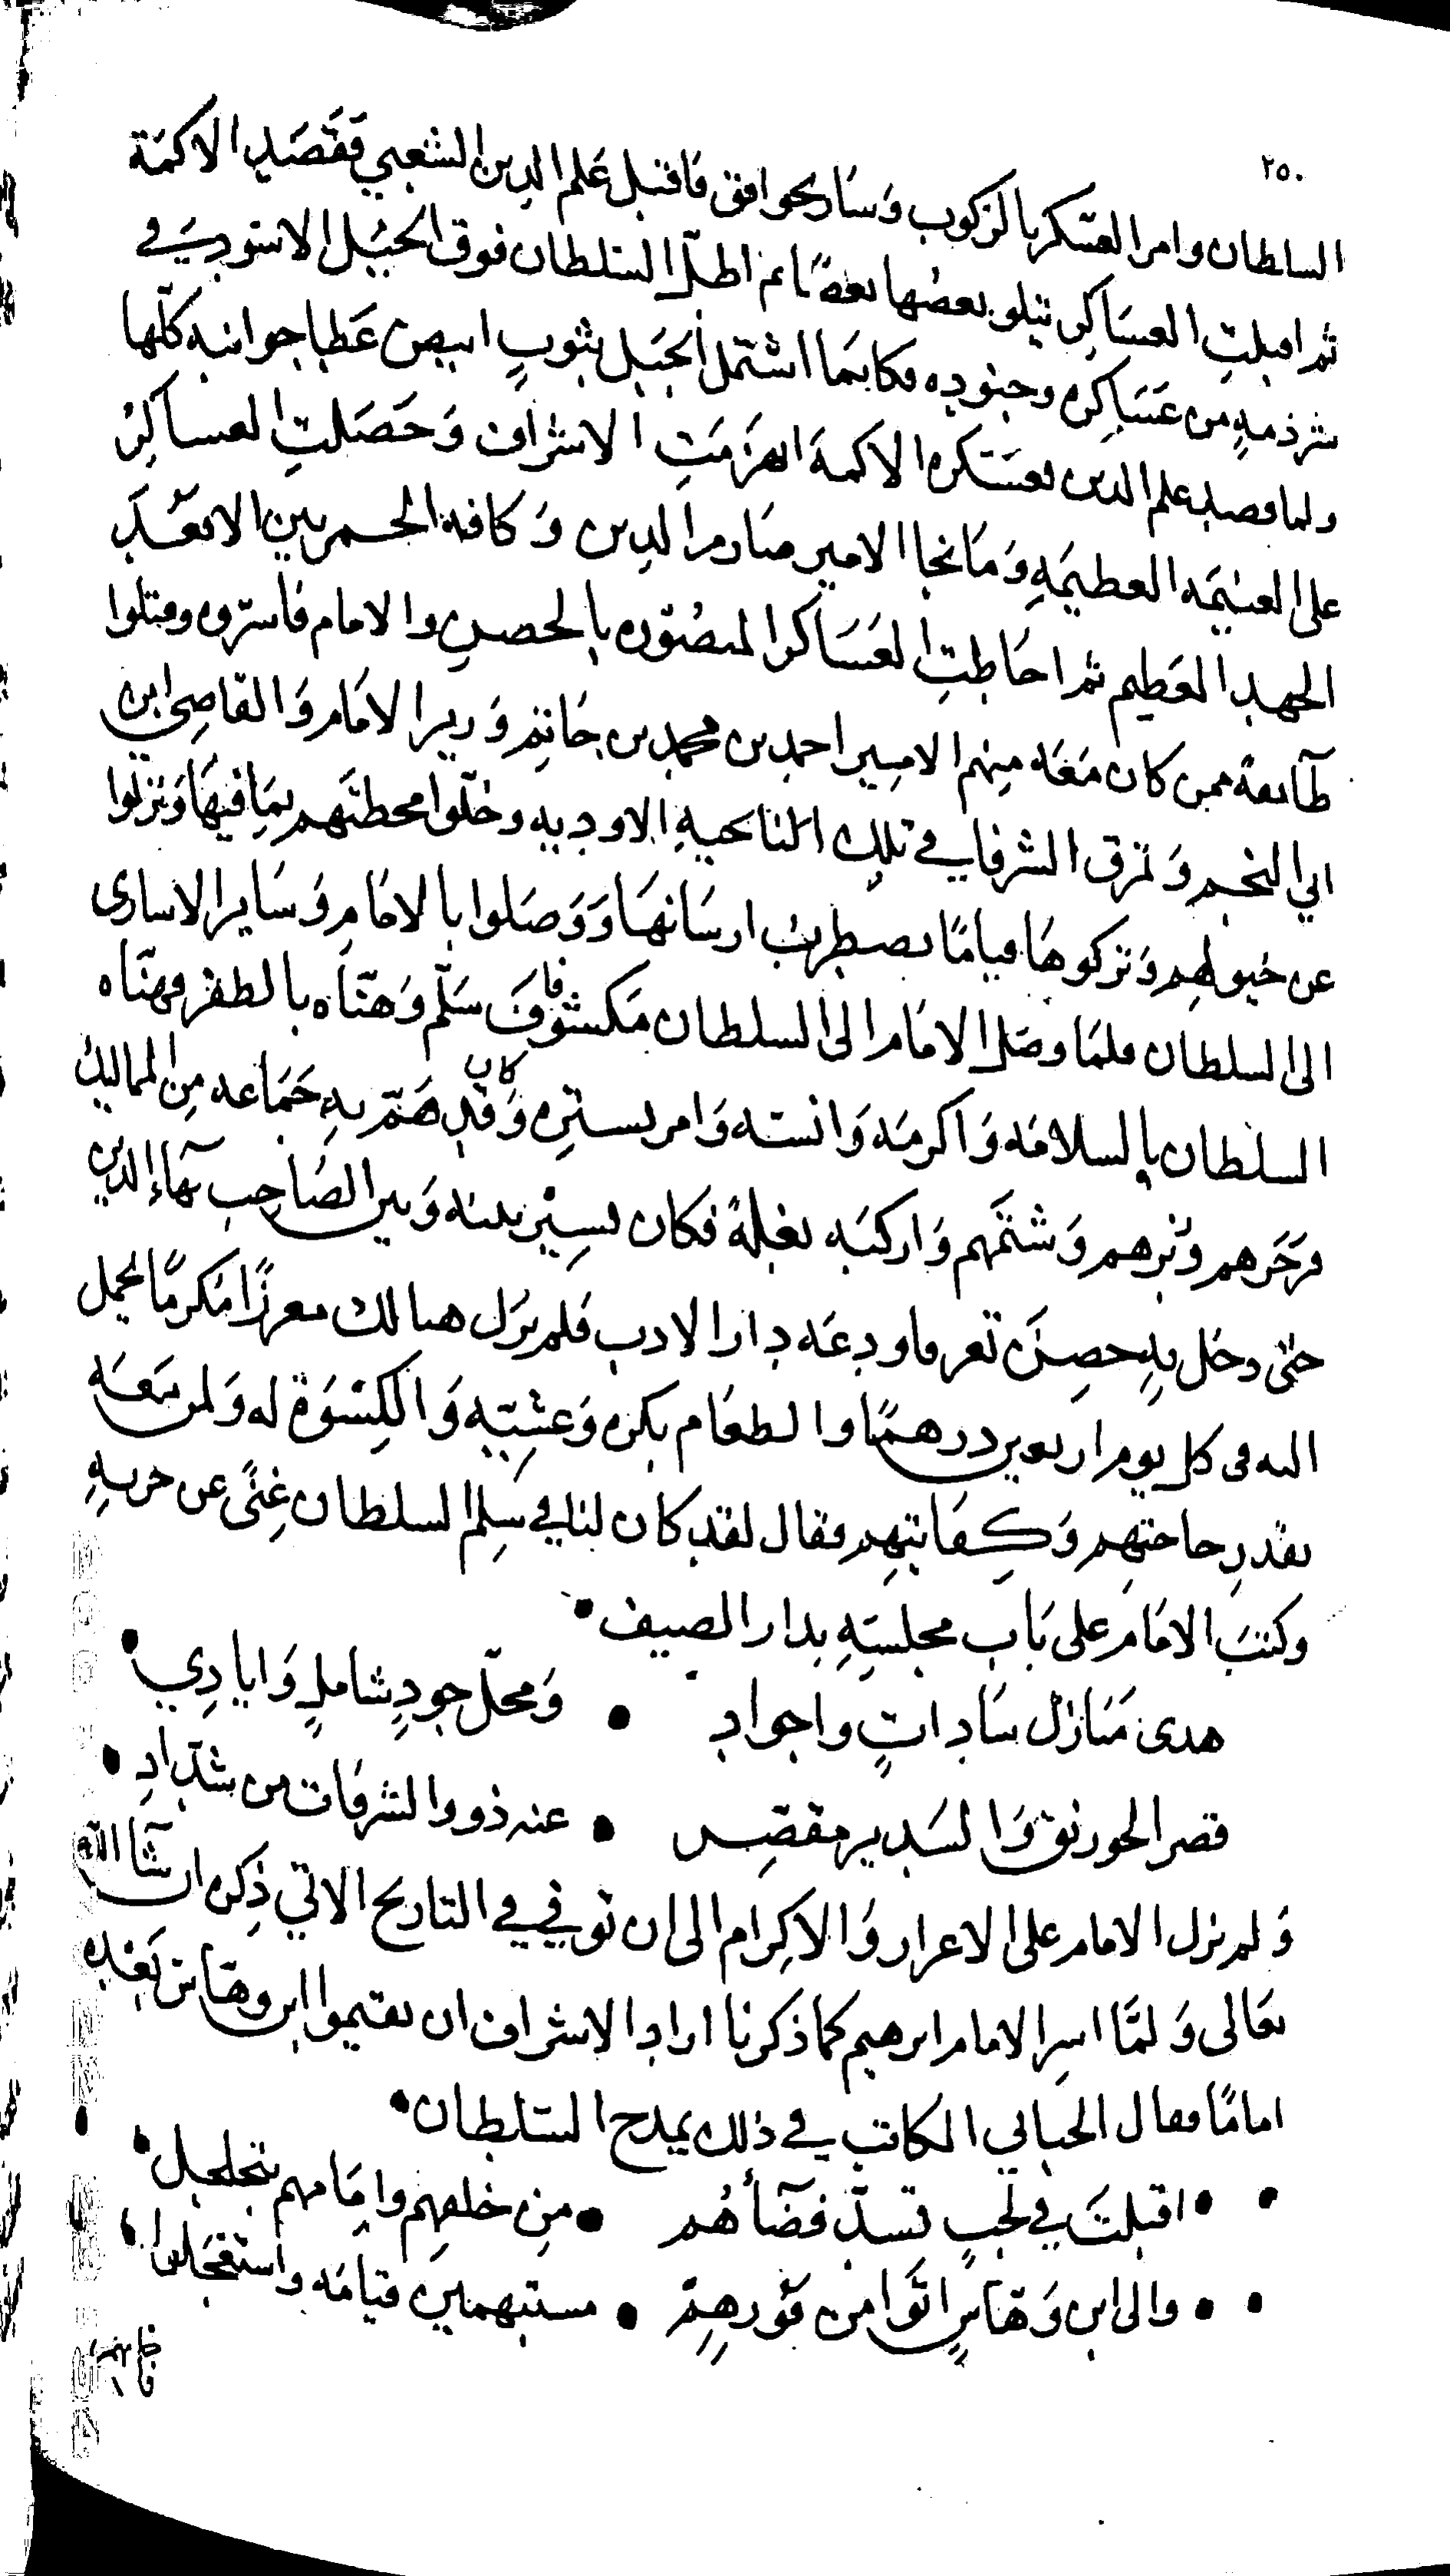 ٢٥٠
السلطان وامر العسكر بالركوب وسار نحو افق فاقبل علم الدين الشعبي فقصد الاكمة
ثم اقبلت العساكر يتلو بعضها بعضًا ثم اطلّ السلطان فوق الجبل الاسود في
شرذمةٍ من عساكره وجنوده فكانما اشتمل الجبل بثوبٍ ابيض غطا جوانبه كلّها
ولما قصد علم الدين بعسكره الاكمة انهزمتِ الاشراف وحصلتِ العساكر
على الغنيمه العظيمةِ وما نجا الامير صارم الدين وكافة الحمزيين الا بعد
الجهد العظيم ثم احاطتِ العساكر المنصوره بالحصن والامام فاسروه وقتلوا
طآئفة ممن كان معه منهم الامير احمد بن محمد بن حاتم وزير الامام والقاضي ابن
ابي النجم وتمزق الشرفا في تلك الناحيةِ الاوديه وخلّوا محطتهم بما فيها ونزلوا
عن خيولهم وتركوها قيامًا تضطرب ارسانها ووصلوا بالامام وساير الاسارى
الى السلطان فلما وصل الامام الى السلطان مكشوفًا سلّم وهنّاه بالظفر فهنّاه
السلطان بالسلامه واكرمه وانسه وامر بستره وقد كان همّ به جماعه من المماليك
فزجرهم ونهرهم وشتمهم واركبه بغلةً فكان يسير بينه وبين الصاحب بهاء الدين
حتى دخل به حصن تعز فاودعه دار الادب فلم يزل هنالك معززًا مكرمًا يحمل
اليه في كل يوم اربعين درهمًا والطعام بكره وعشيّةٍ والكسوة له ولمن معه
بقدر حاجتهم وكفايتهم فقال لقد كان لنا في سلم السلطان غِنًى عن حربهِ
وكتب الامام على باب مجلسه بدار الضيف
هذى منازل ساداتٍ واجواد • ومحلّ جودٍ شاملٍ وايادي
قصر الخورنق والسدير مقصر • عنه ذووا الشرفات من شدّاد
ولم يزل الامام على الاعزاز والاكرام الى ان توفي في التاريخ الاتي ذكره ان شاء الله
تعالى ولمّا اسر الامام ابرهيم كما ذكرنا اراد الاشراف ان يقيموا ابن وهاس بعده
امامًا فقال الكاتب في ذلك يمدح السلطان
اقبلتَ في لجبٍ تسدّ فضآأهُم • من خلفهم وامامهم يتجلجل
والى ابن وهّاسٍ اتوا من فورهم • مستبهمين قيامه واستعجلوا